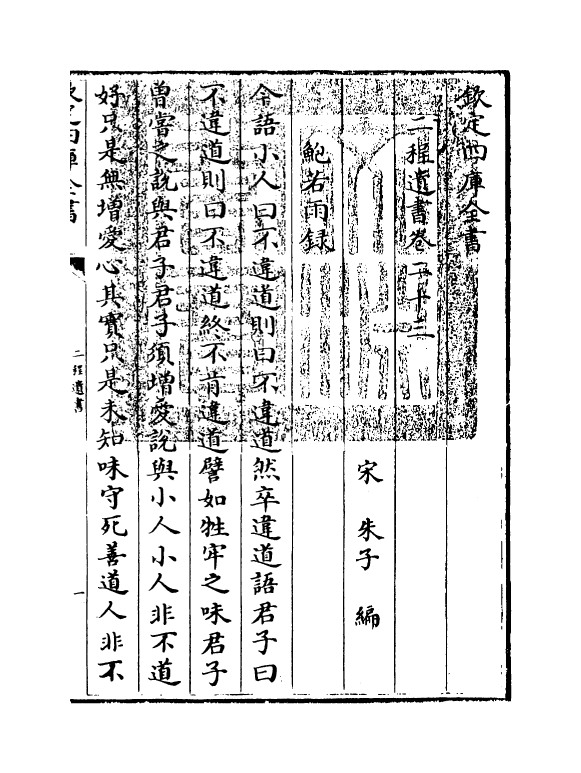 欽定四庫全書
二程遺書卷二十三
宋　朱子　編
鮑若雨録
今語小人曰不違道則曰不違道然卒違道語君子曰
不違道則曰不違道終不肯違道譬如牲牢之味君子
曽嘗之說與君子君子須增愛說與小人小人非不道
好只是無增愛心其實只是未知味守死善道人非不
欽定四庫全書
二程遺書
一